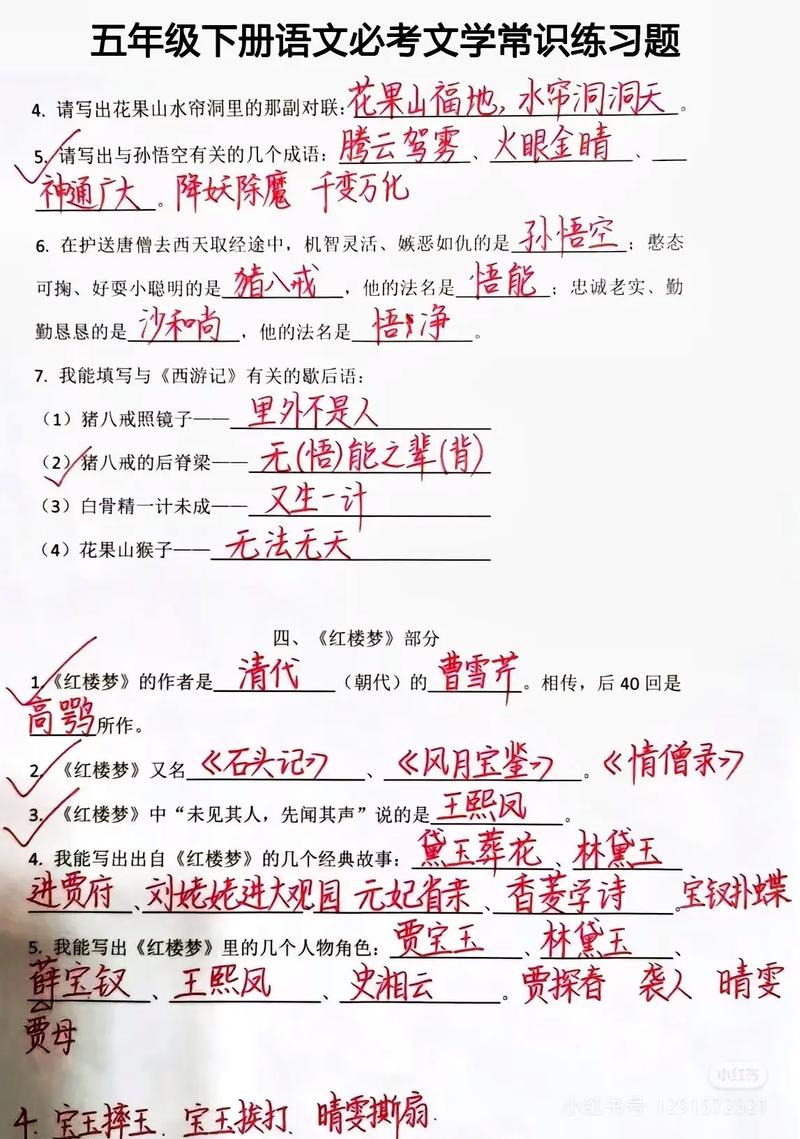 五年级下册语文必考文学常识练习题
4. 请写出花果山水帘洞里的那副对联:花果山福地,水帘洞洞天。
5. 请写出与孙悟空有关的几个成语:腾云驾雾、火眼金晴、
神通广大。降妖除魔 千变万化
6. 在护送唐僧去西天取经途中,机智灵活、嫉恶如仇的是孙悟空;憨态
可掬、好耍小聪明的是猪八戒,他的法名是悟能;忠诚老实、勤
勤恳恳的是沙和尚,他的法名是悟净。
7. 我能填写与《西游记》有关的歇后语:
(1)猪八戒照镜子——里外不是人
(2)猪八戒的后脊梁——无(悟)能之辈(背)
(3)白骨精一计未成——又生一计
(4)花果山猴子——无法无天
四、《红楼梦》部分
1.《红楼梦》的作者是清代(朝代)的曹雪芹。相传,后 40 回是
高鹗所作。
2. 《红楼梦》又名《石头记》、《风月宝鉴》。《情僧录》
3. 《红楼梦》中“未见其人,先闻其声”说的是王熙凤。
4. 我能写出出自《红楼梦》的几个经典故事:黛玉葬花、林黛玉
进贾府、刘姥姥进大观园 元妃省亲、香菱学诗。宝钗扑蝶
5. 我能写出《红楼梦》里的几个人物角色:贾宝玉、林黛玉、
薛宝钗、王熙凤、史湘云。贾探春 袭人 晴雯
贾母
4. 宝玉摔玉. 宝玉挨打. 晴雯撕扇.
小红书
小红书号 1291572521